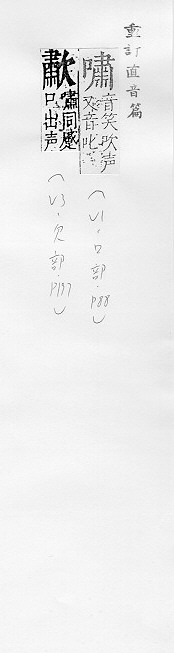 重訂直音篇
嘯 音笑吹声
又音叱
（V1．口部．P88）
歗 嘯同蹙
口出声
（V3．欠部．P197）